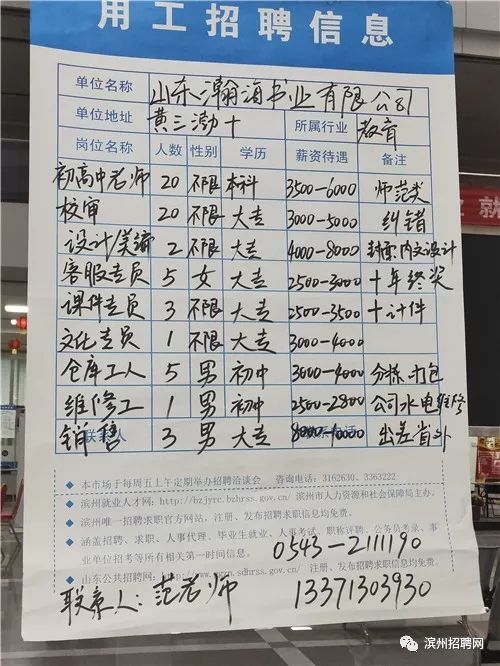 用工招聘信息
单位名称 山东瀚海书业有限公司
单位地址 黄三渤十 所属行业 教育
岗位名称 人数 性别 学历 薪资待遇 备注
初高中老师 20 不限 本科 3500-6000 师范类
校审 20 不限 大专 3000-5000 纠错
设计/美编 2 不限 大专 4000-8000 封面、内文设计
客服专员 5 女 大专 2500-3000 +年终奖
课件专员 3 不限 大专 2500-3500 +计件
文化专员 1 不限 大专 3000-4000
仓库工人 5 男 初中 3000-4000 分拣、打包
维修工 1 男 初中 2500-2800 公司水电维修
销售 3 男 大专 8000-10000 出差省外
◆ 本市场于每周五上午定期举办招聘洽谈会 咨询电话：3162630、3363222
◆ 滨州就业人才网：http://bzjyrc.bzhrss.gov.cn/ 滨州市人力资源和社会保障局主办。
◆ 滨州唯一招聘求职官方网站，注册、发布招聘求职信息均免费。
◆ 涵盖招聘、求职、人事代理、毕业生就业、人事考试、职称评聘、公务员考录、事
业单位招考等所有相关第一时间信息。
0543-2111190
◆ 山东公共招聘网： 注册、发布招聘求职信息均免费。
联系人：范老师 13371303930
滨州招聘网